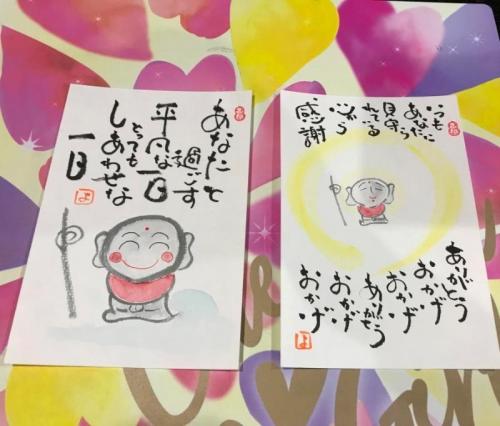 あなたと
過ごす
平凡な一日
とっても
しあわせな
一日
よ
いつも
あなたに
見守ら
れている
心から
感謝
ありがとう
おかげ
おかげ
ありがとう
おかげ
おかげ
よ